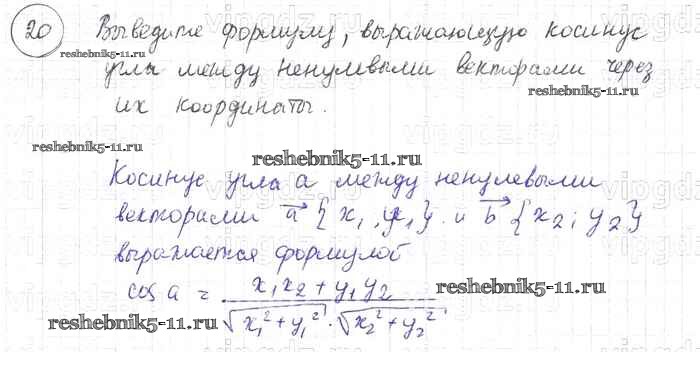 20 Выведите формулу, выражающую косинус
reshebnik5-11.ru
угла между ненулевыми векторами через
reshebnik5-11.ru
их координаты.
reshebnik5-11.ru
reshebnik5-11.ru
Косинус угла a между ненулевыми
векторами a {x₁, y₁} и b {x₂; y₂}
выражается формулой
cos a = x₁x₂ + y₁y₂ / √x₁² + y₁² · √x₂² + y₂²
reshebnik5-11.ru
reshebnik5-11.ru